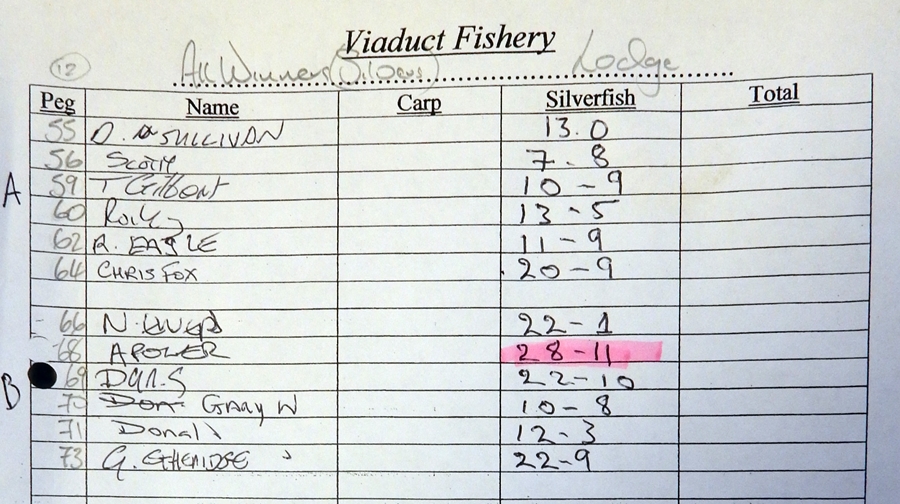 Viaduct Fishery
12 All Winners (Silvers) Lodge
Peg Name Carp Silverfish Total
55 D. O SULLIVAN 13.0
56 SCOTTY 7-8
A 59 T Gilbert 10-9
60 Rocky 13-5
62 R. EAGLE 11-9
64 CHRIS FOX 20-9
66 N. 22-1
68 A POWER 28-11
B 69 DAN.S 22-10
70 Don Gary W 10-8
71 Donald 12-3
73 G. ETHERIDGE 22-9